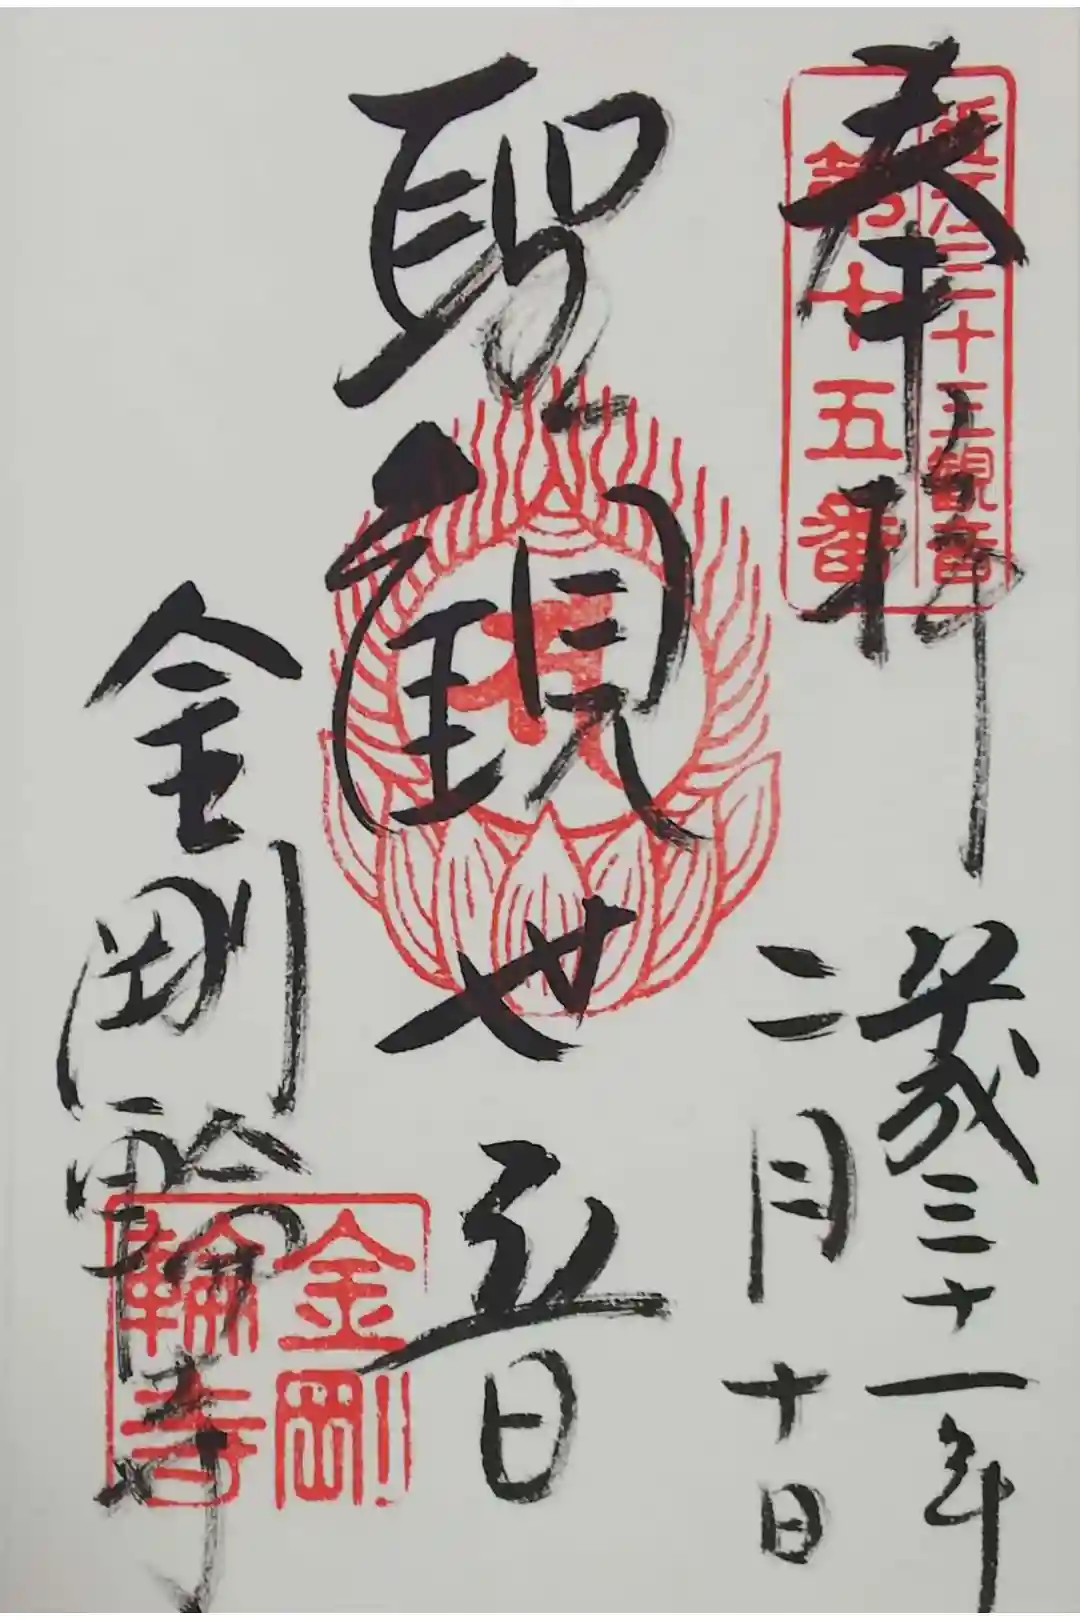 奉拝
近江三十三観音
第十五番
平成三十一年
二月十日
聖観世音
金剛輪寺
金剛
輪寺